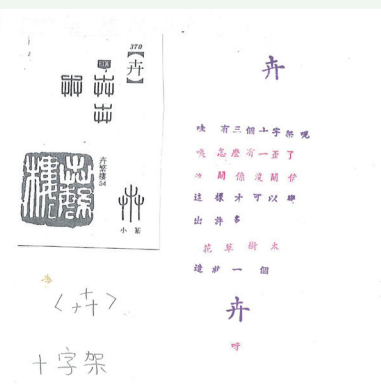 370
【卉】
卉繁樓
54
小篆
十字架
卉
哇 有三個十字架呢
咦 怎麼有一歪了
關係沒關係
這樣才可以
出許多
花草樹
一個
卉
呀